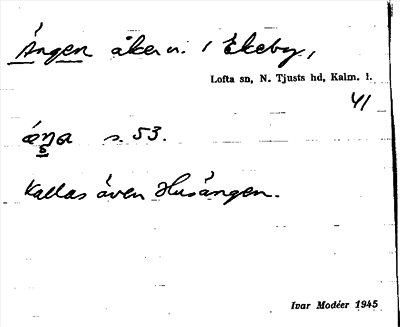 Ängen åker n. i Ekeby,
Lofta sn, N. Tjusts hd, Kalm. l.
41
s. 53.
Kallas även Husängen.
Ivar Modéer 1945